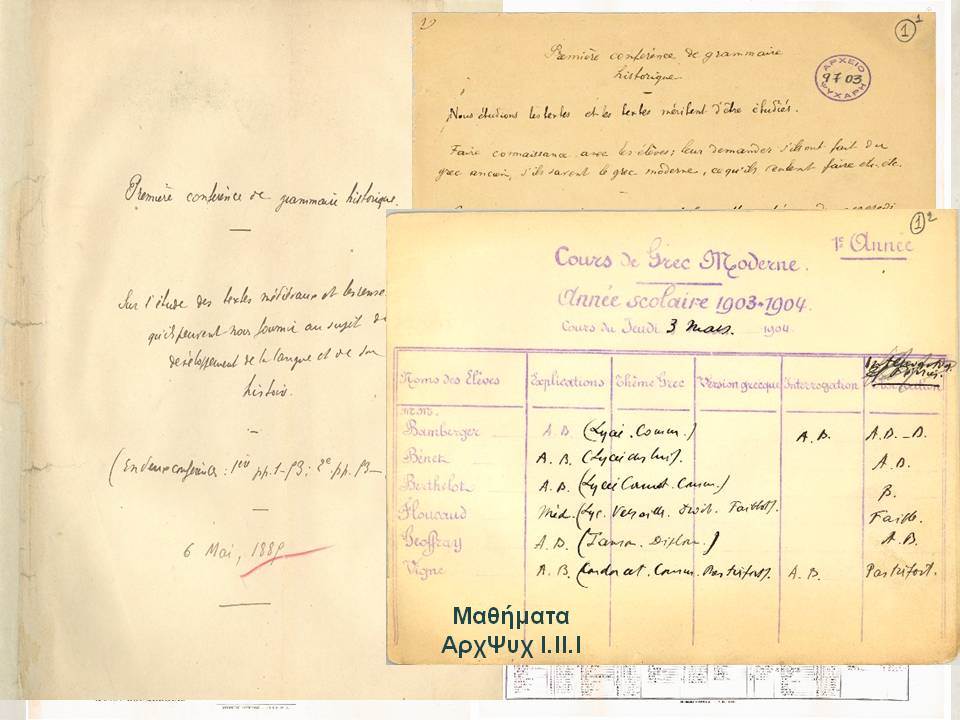 Première conférence de grammaire historique.
Sur l'étude des textes médiévaux et les rense-
qu'ils peuvent nous fournir au sujet du
développement de la langue et de son
histoire.
(En deux conférences: 1ère pp. 1-93; 2e pp. 93-
6 Mai, 188
1)
1
1
Première conférence de grammaire
historique
ΑΡΧΕΙΟ
9703
ΨΥΧΑΡΗ
Nous étudions les textes et les textes méritent d'être étudiés.
Faire connaissance avec les élèves; leur demander s'ils ont fait du
grec ancien, s'ils savent le grec moderne, ce qu'ils veulent faire etc. etc.
1 2
1e Année
Cours de Grec Moderne.
Année scolaire 1903-1904.
Cours du Jeudi 3 Mars. 1904.
Noms des Élèves Explications Thème Grec Version grecque Interrogation
M.M.
Bamberger A.B. (Lycée. Comm.) A.B. A.B._B.
Bénet A.B. (Lycée A.B.
Berthelot A.B. (Lycée Carnot. Comm.) B.
Floucaud Méd. (Lyc. Versailles. Droit. Faible). Faible.
Geoffray A.B. (Janson. Diplom.) A.B.
Vigne A.B. (Condorcet. Comm. Pas très fort). A.B. Pas très fort.
Μαθήματα
ΑρχΨυχ I.II.I